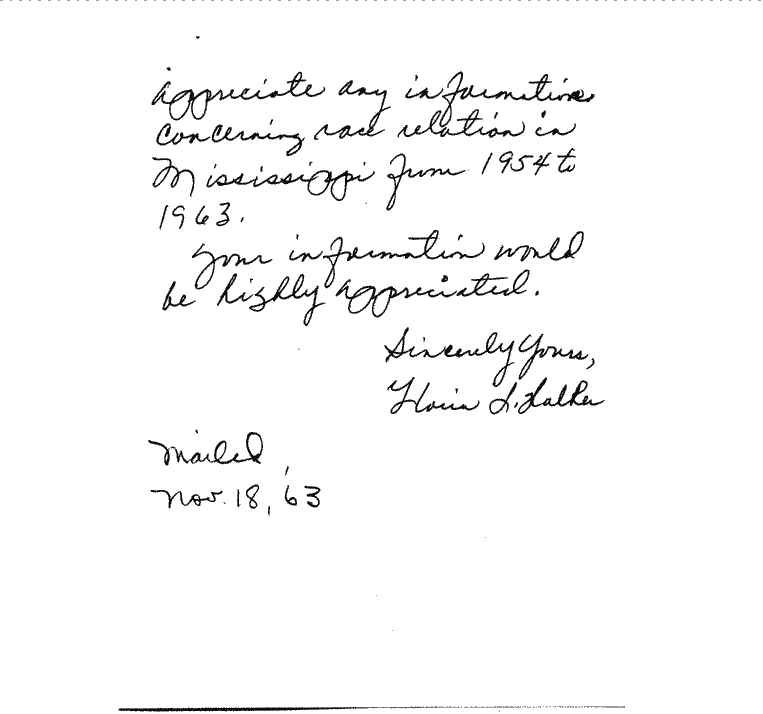 appreciate any information
concerning race relation in
Mississippi from 1954 to
1963.
Your information would
be highly appreciated.
Sincerely Yours,
L.
Mailed
Nov. 18, '63